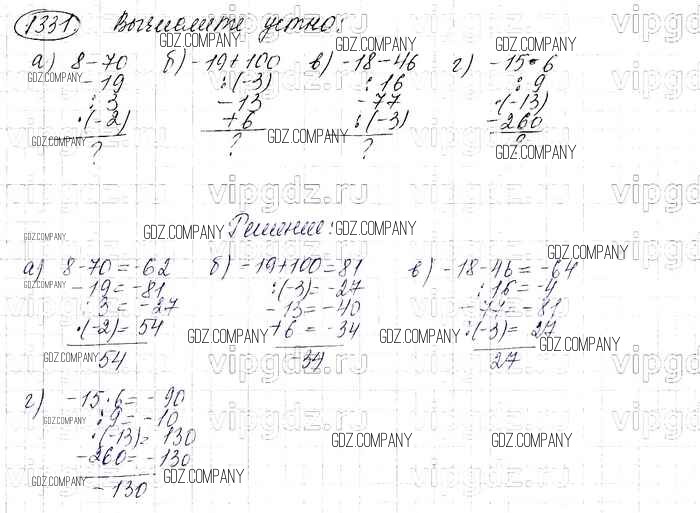 1331. Вычислите устно:
а) 8-70 б) -19+100 в) -18-46 г) -15·6
-19 :(-3) :16 :9
:3 -13 -77 ·(-13)
·(-2) +6 :(-3) -260
? ? ? ?
Решение:
а) 8-70=-62 б) -19+100=81 в) -18-46=-64
-19=-81 :(-3)=-27 :16=-4
:3=-27 -13=-40 -77=-81
·(-2)=54 +6=-34 :(-3)=27
54 -34 27
г) -15·6=-90
:9=-10
·(-13)=130
-260=-130
-130
GDZ.COMPANY
vipgdz.ru